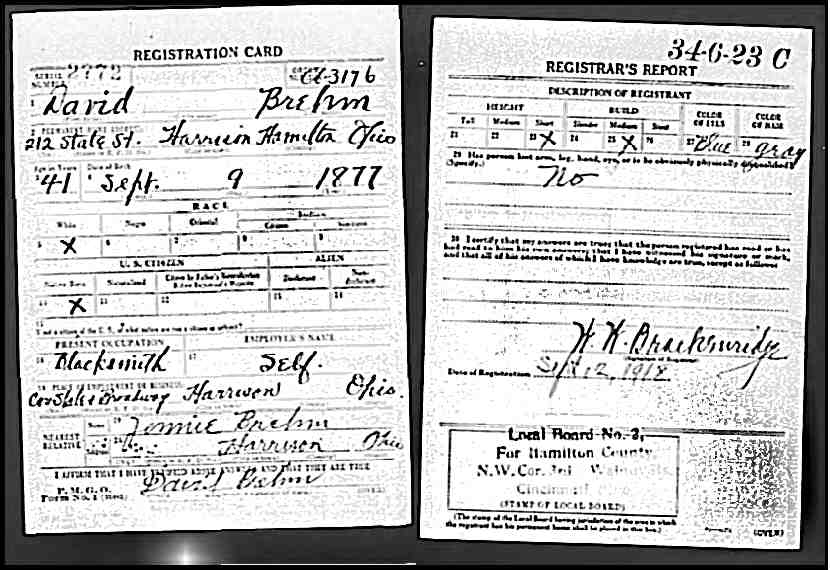 REGISTRATION CARD
SERIAL NUMBER 2772 ORDER NUMBER A-3176
1 David Brehm
2 PERMANENT HOME ADDRESS
212 State St. Harrison Hamilton Ohio
Age in Years Date of Birth
3 41 4 Sept. 9 1877
RACE
White Negro Oriental Indian
Citizen
5 X 6 7 8 9
U. S. CITIZEN ALIEN
Native Born Naturalized Citizen by Father's Naturalization Before Registrant's Majority Declarant Non-declarant
10 X 11 12 13 14
15
PRESENT OCCUPATION EMPLOYER'S NAME
16 Blacksmith 17 Self.
18 PLACE OF EMPLOYMENT OR BUSINESS
Cor State & Broadway Harrison Ohio.
NEAREST RELATIVE Name 19 Brehm
Address 20 Harrison Ohio
I AFFIRM THAT I HAVE VERIFIED ABOVE ANSWERS AND THAT THEY ARE TRUE
P. M. G. O.
Form No. 1 David Brehm (OVER)
34-6-23 C
REGISTRAR'S REPORT
DESCRIPTION OF REGISTRANT
HEIGHT BUILD COLOR OF EYES COLOR OF HAIR
Tall Medium Short Slender Medium Stout
21 22 23 X 24 25 X 26 27 Blue 28 gray
29 Has person lost arm, leg, hand, eye, or is he obviously physically disqualified?
(Specify.) No
30 I certify that my answers are true; that the person registered has read or has
had read to him his own answers; that I have witnessed his signature or mark,
and that all of his answers of which I have knowledge are true, except as follows:
Date of Registration Sept 12, 1918
Local Board No. 2,
For Hamilton County,
N.W. Cor. 3rd Walnut Sts.
Cincinnati, Ohio
(STAMP OF LOCAL BOARD)
(The stamp of the Local Board having jurisdiction of the area in which
the registrant has his permanent home shall be placed in this box.)
(OVER)